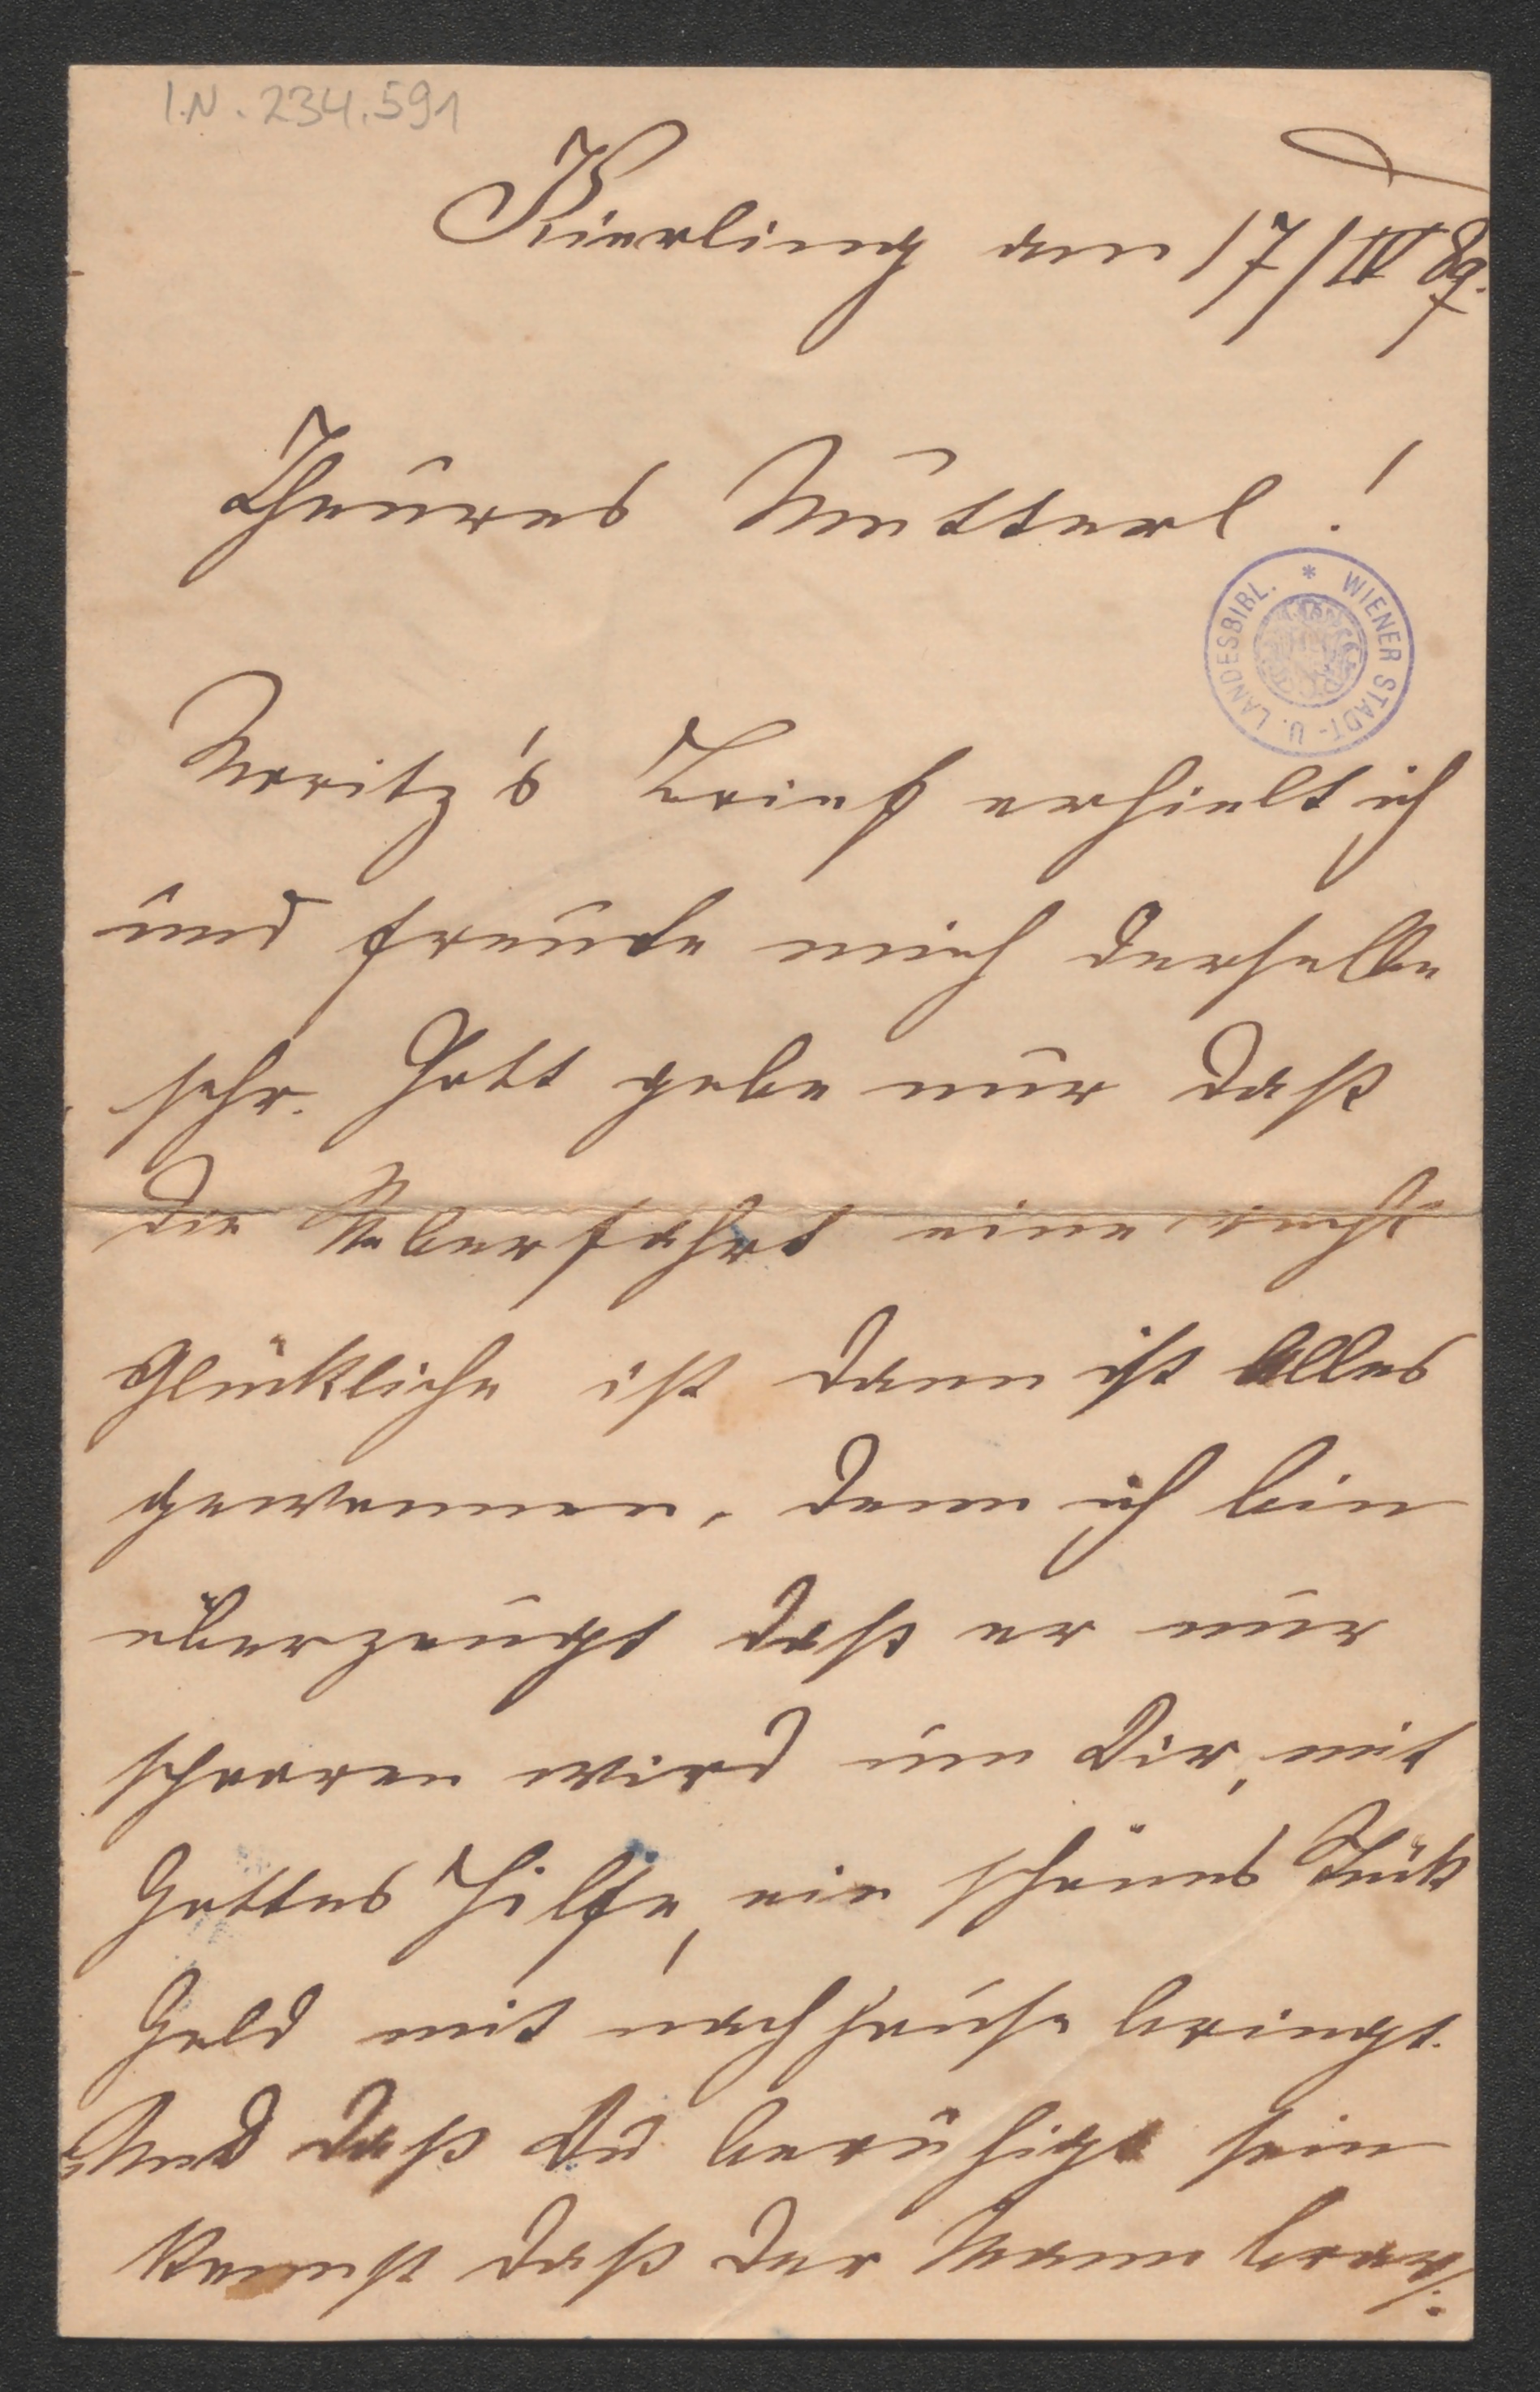 I.N. 234.591
Kierling am 17/IV 89.
Theures Mutterl!
* WIENER STADT- U. LANDESBIBL.
Moritz's Brief erhielt ich
und freute mich derselbe
sehr. Gott gebe nur daß
die Ueberfahrt eine recht
glückliche ist dann ist Alles
gewonnen, denn ich bin
überzeugt daß er nur
sparen wird um Dir, mit
Gottes Hilfe, ein schönes Stück
Geld mit nach hause bringt.
Und daß Du beruhigt sein
kannst daß der Mann brav/: